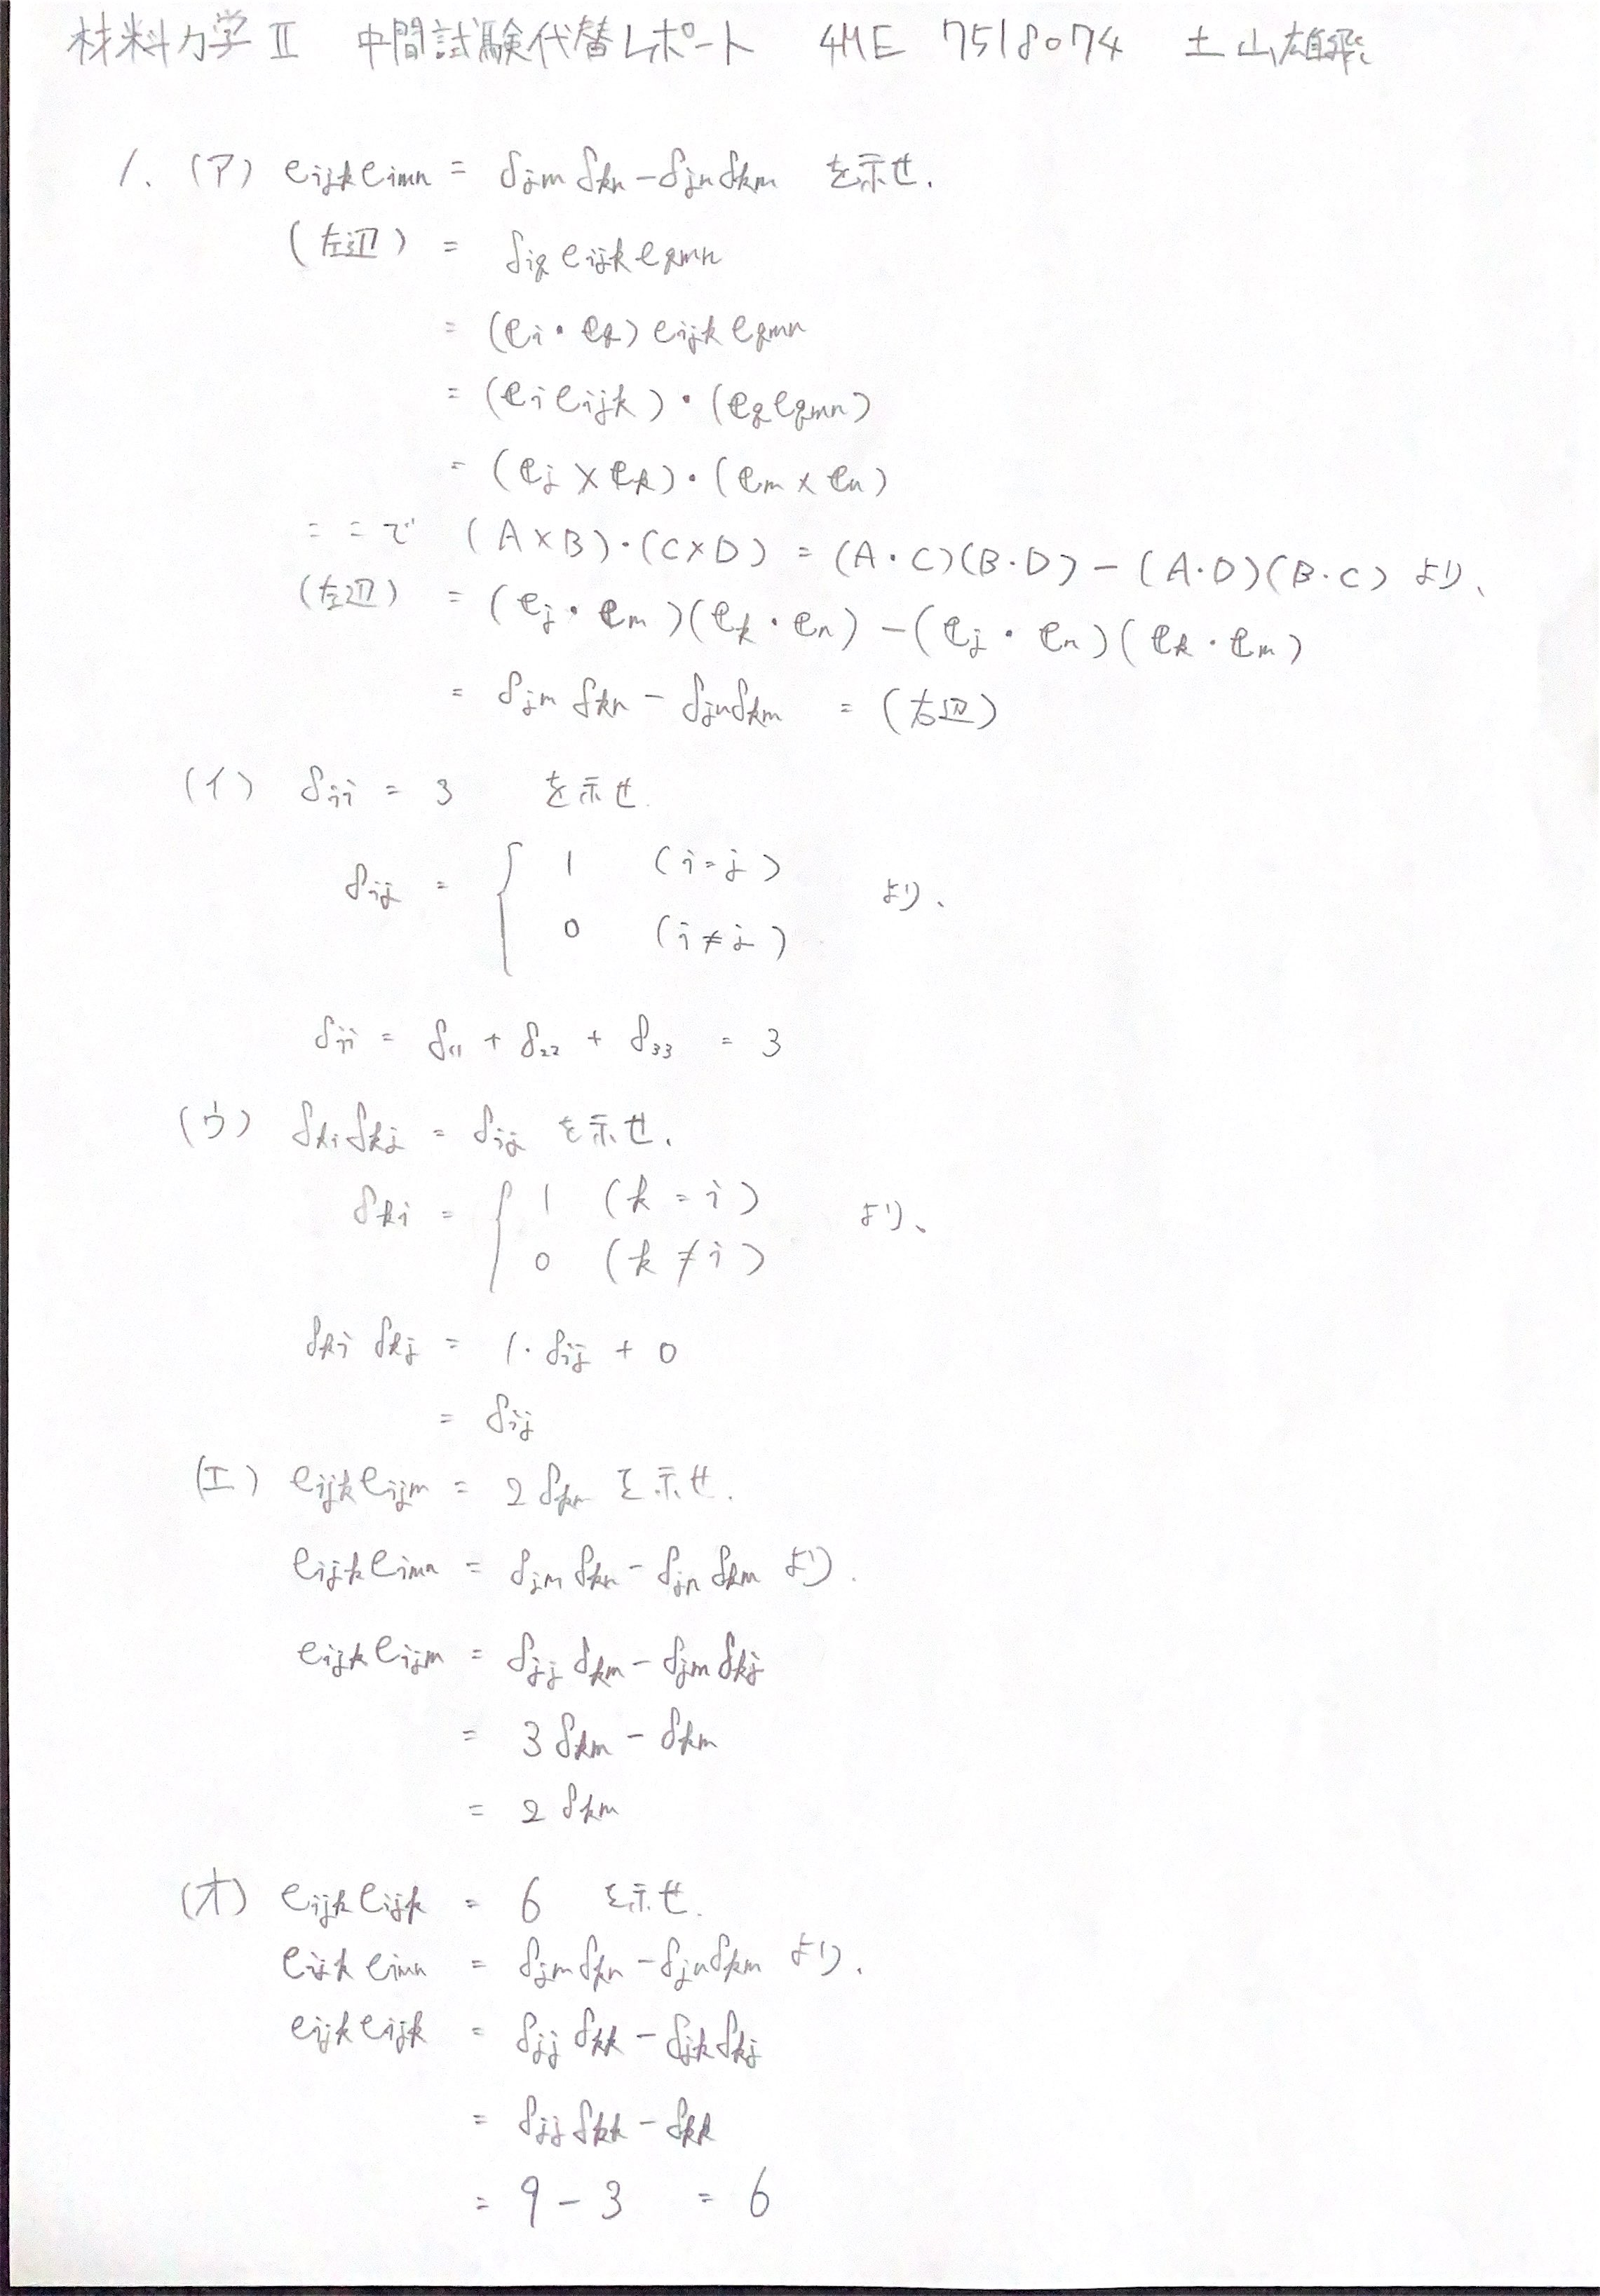 材料力学Ⅱ 中間試験代替レポート 4ME 7518074 土山雄飛
1. (ア) eijk eimn = δjm δkn − δjn δkm を示せ.
(左辺) = δiq eijk eqmn
= (ei・eq) eijk eqmn
= (ei eijk)・(eq eqmn)
= (ej × ek)・(em × en)
ここで (A×B)・(C×D) = (A・C)(B・D) − (A・D)(B・C) より、
(左辺) = (ej・em)(ek・en) − (ej・en)(ek・em)
= δjm δkn − δjn δkm = (右辺)
(イ) δii = 3 を示せ.
δij = { 1 (i=j)
0 (i≠j) より、
δii = δ11 + δ22 + δ33 = 3
(ウ) δki δkj = δij を示せ.
δki = { 1 (k=i)
0 (k≠i) より、
δki δkj = 1・δij + 0
= δij
(エ) eijk eijm = 2δkm を示せ.
eijk eimn = δjm δkn − δjn δkm より.
eijk eijm = δjj δkm − δjm δkj
= 3δkm − δkm
= 2δkm
(オ) eijk eijk = 6 を示せ.
eijk eimn = δjm δkn − δjn δkm より.
eijk eijk = δjj δkk − δjk δkj
= δjj δkk − δkk
= 9 − 3 = 6